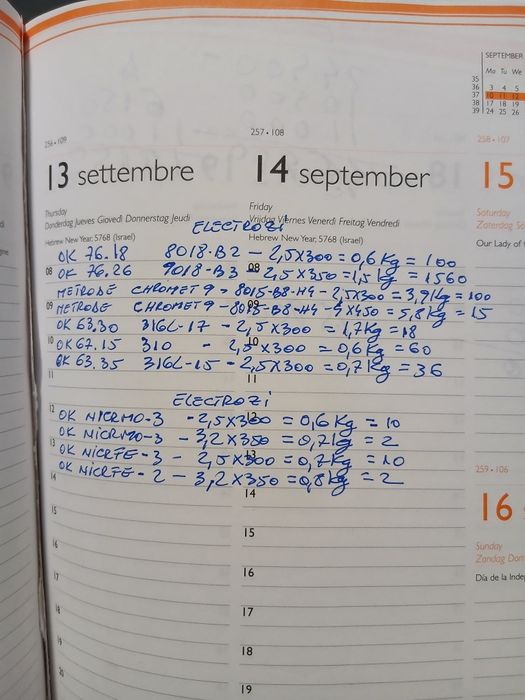 SEPTEMBER
Mo Tu We
35
36 3 4 5
37 10 11 12
38 17 18 19
39 24 25 26
256 • 109
257 • 108
258 • 107
13 settembre
14 september
15
Thursday
Donderdag Jueves Giovedì Donnerstag Jeudi
Friday
Vrijdag Viernes Venerdì Freitag Vendredi
Saturday
Zaterdag
Hebrew New Year, 5768 (Israel)
Hebrew New Year, 5768 (Israel)
Our Lady of
ELECTROZI
OK 76.18 8018-B2 - 2,5X300 = 0,6 Kg = 100
08 OK 76.26 9018-B3 08 2,5X350 = 1,5 Kg = 1560
METRODE CHROMET 9 - 8015-B8-H4 - 2,5X300 = 3,9 Kg = 100
09 METRODE CHROMET 9 - 8015-B8-H4 - 4X450 = 5,8 Kg = 15
09
OK 63.30 316L-17 - 2,5X300 = 1,7 Kg = 18
10 OK 67.15 310 - 2,5X300 = 0,6 Kg = 60
10
OK 63.35 316L-15 - 2,5X300 = 0,7 Kg = 36
11
11
ELECTROZI
12
12
OK NICRMO-3 - 2,5X300 = 0,6 Kg = 10
OK NICRMO-3 - 3,2X350 = 0,7 Kg = 2
13
13
OK NICRFE-3 - 2,5X300 = 0,7 Kg = 10
OK NICRFE-2 - 3,2X350 = 0,8 Kg = 2
14
14
259 • 106
15
15
16
Sunday
Zondag
Día de la
16
16
17
17
18
18
19
19
20